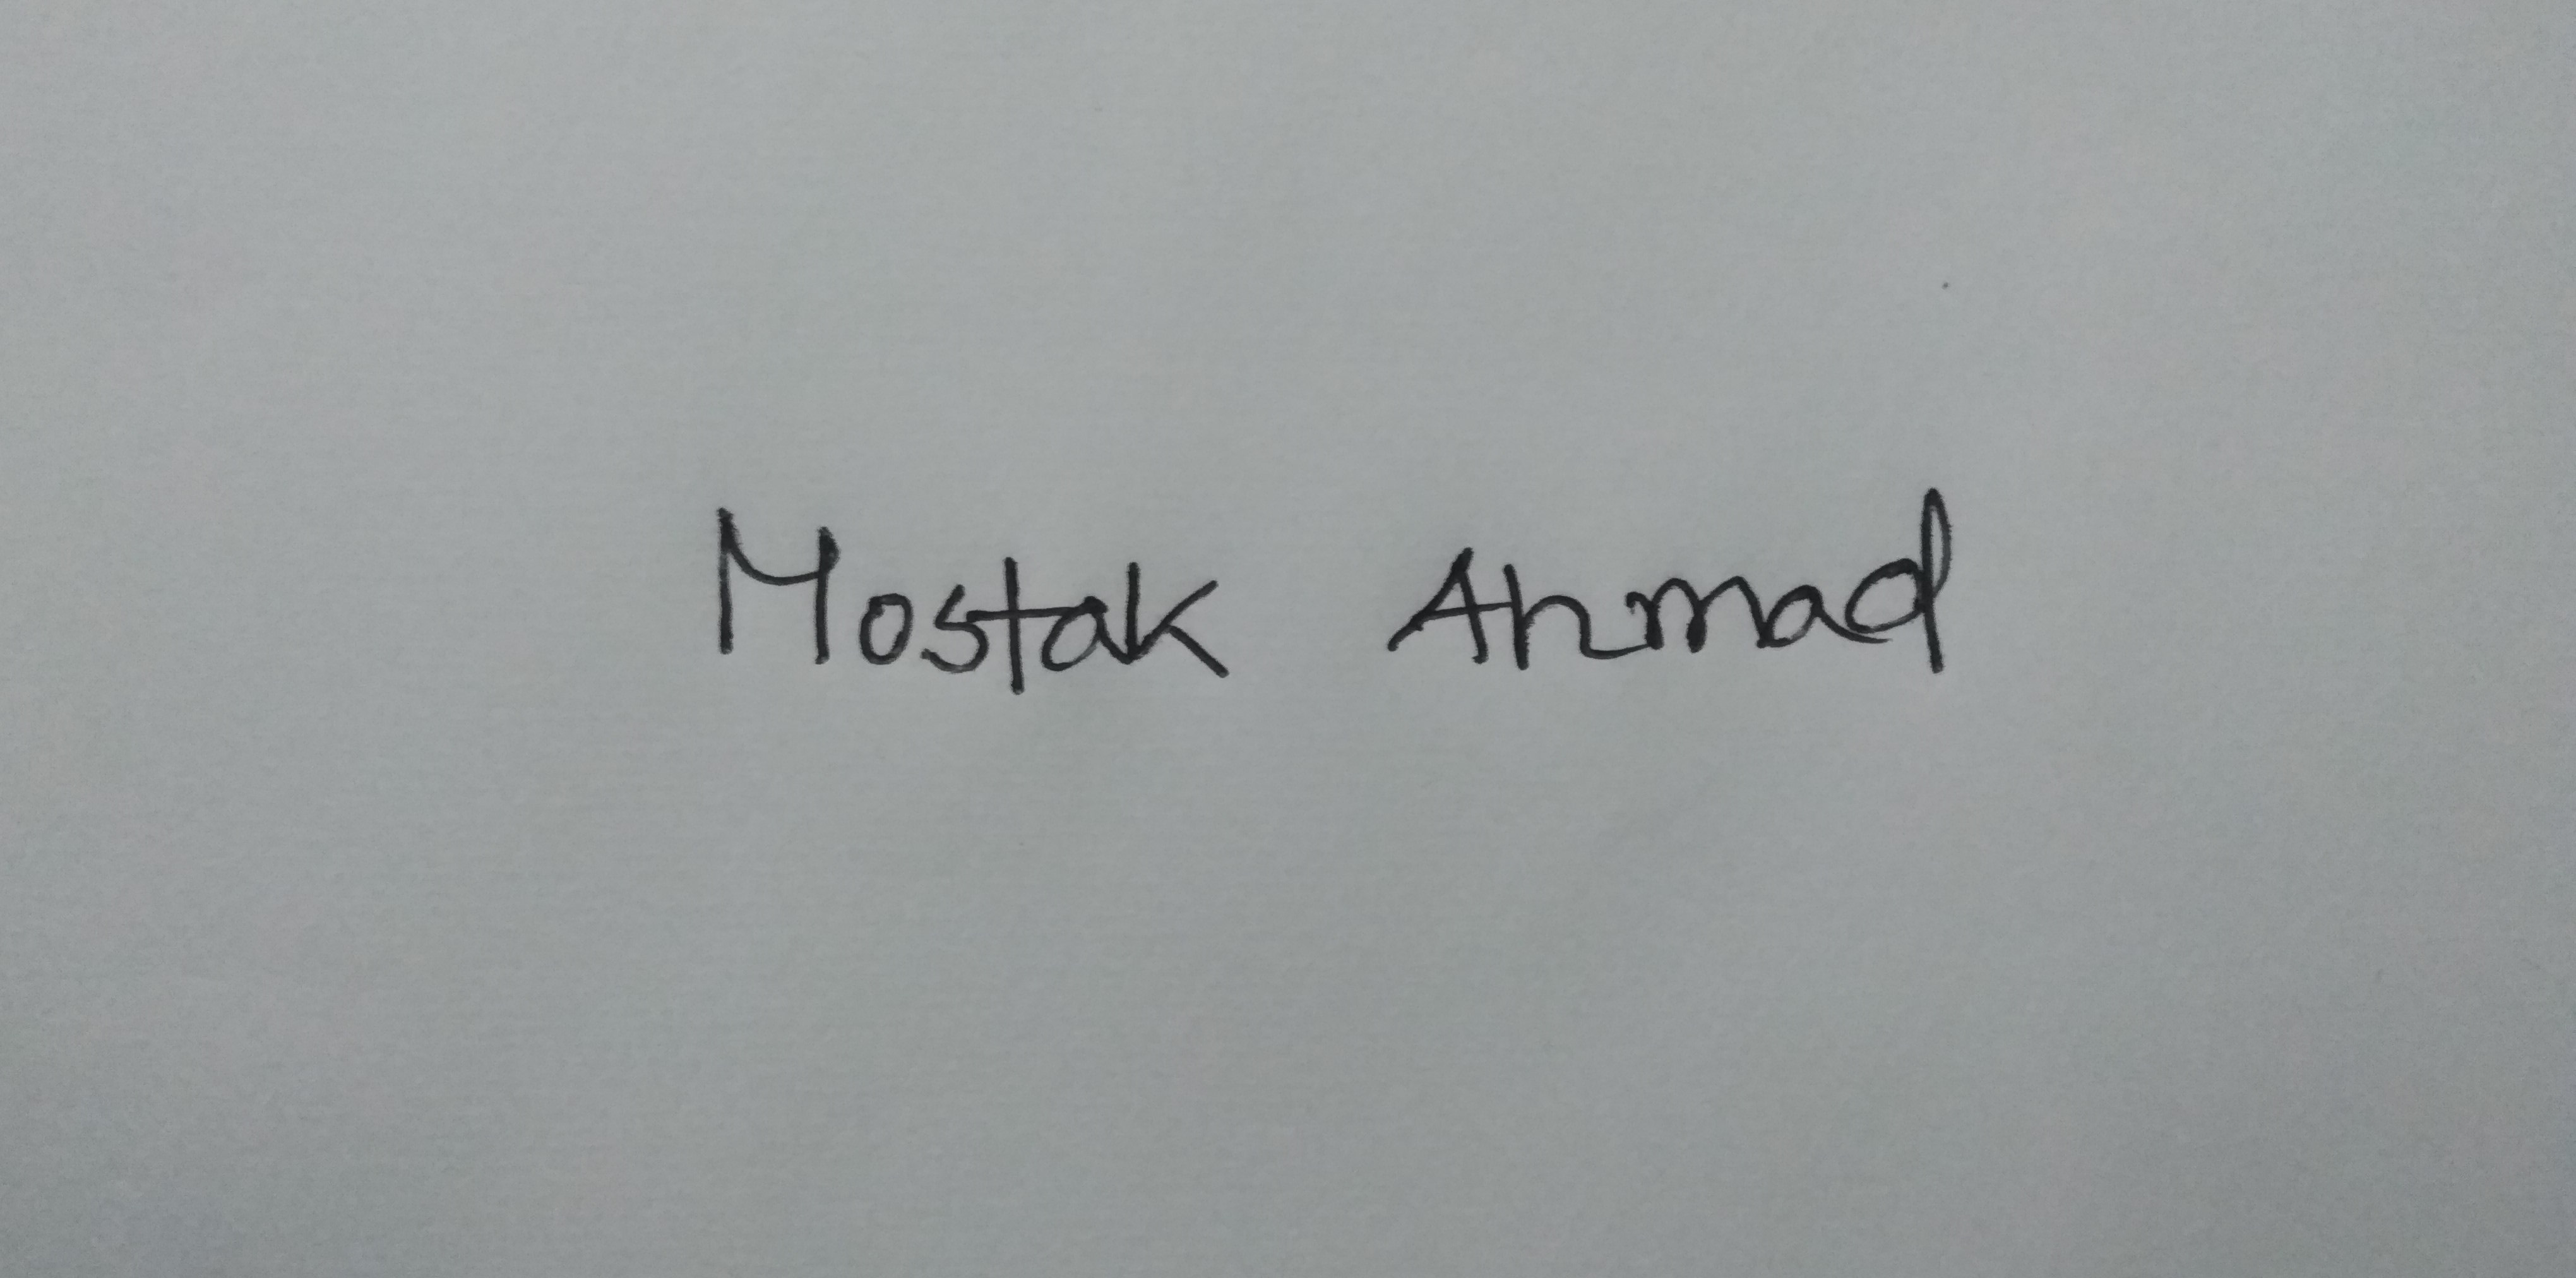 Mostak Ahmad